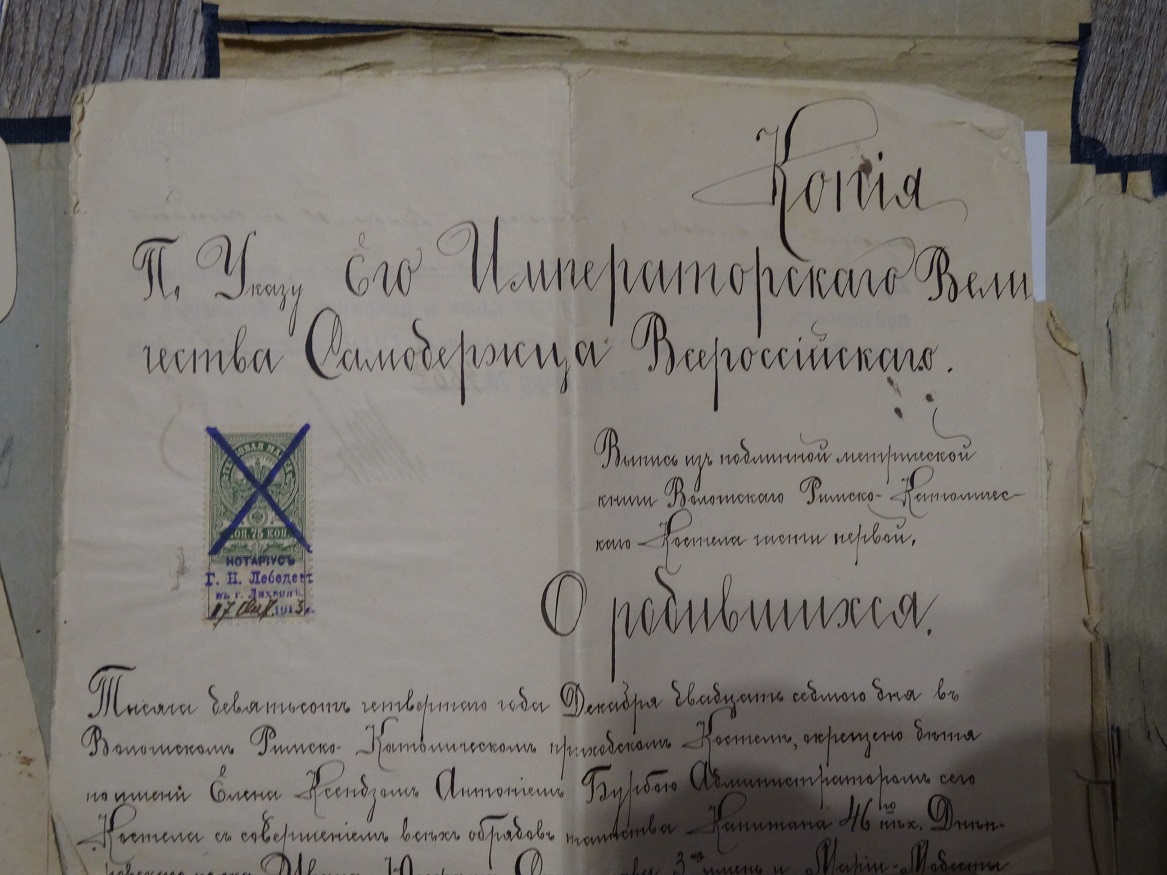 Копія
По Указу Его Императорскаго Вели
чества Самодержца Всероссійскаго.
Выпись изъ подлинной метрической
книги Римско-Католичес-
каго Костела части первой.
О родившихся.
КОП. 75 КОП.
НОТАРІУСЪ
Г. Н. Лебедевъ
въ г. Лихвинѣ.
17 191
Тысяча девятьсотъ четвертаго года Декабря двадцать седмого дня въ
Римско-Католическомъ приходскомъ Костелѣ, окрещено дитя
по имени Елена Ксендзомъ Антоніемъ Бурбою Администраторомъ сего
Костела съ совершеніемъ всѣхъ обрядовъ таинства Капитана 46 го пѣх. Днѣп-
ровскаго полка Ивана 3 имень и Маріи-Модесты